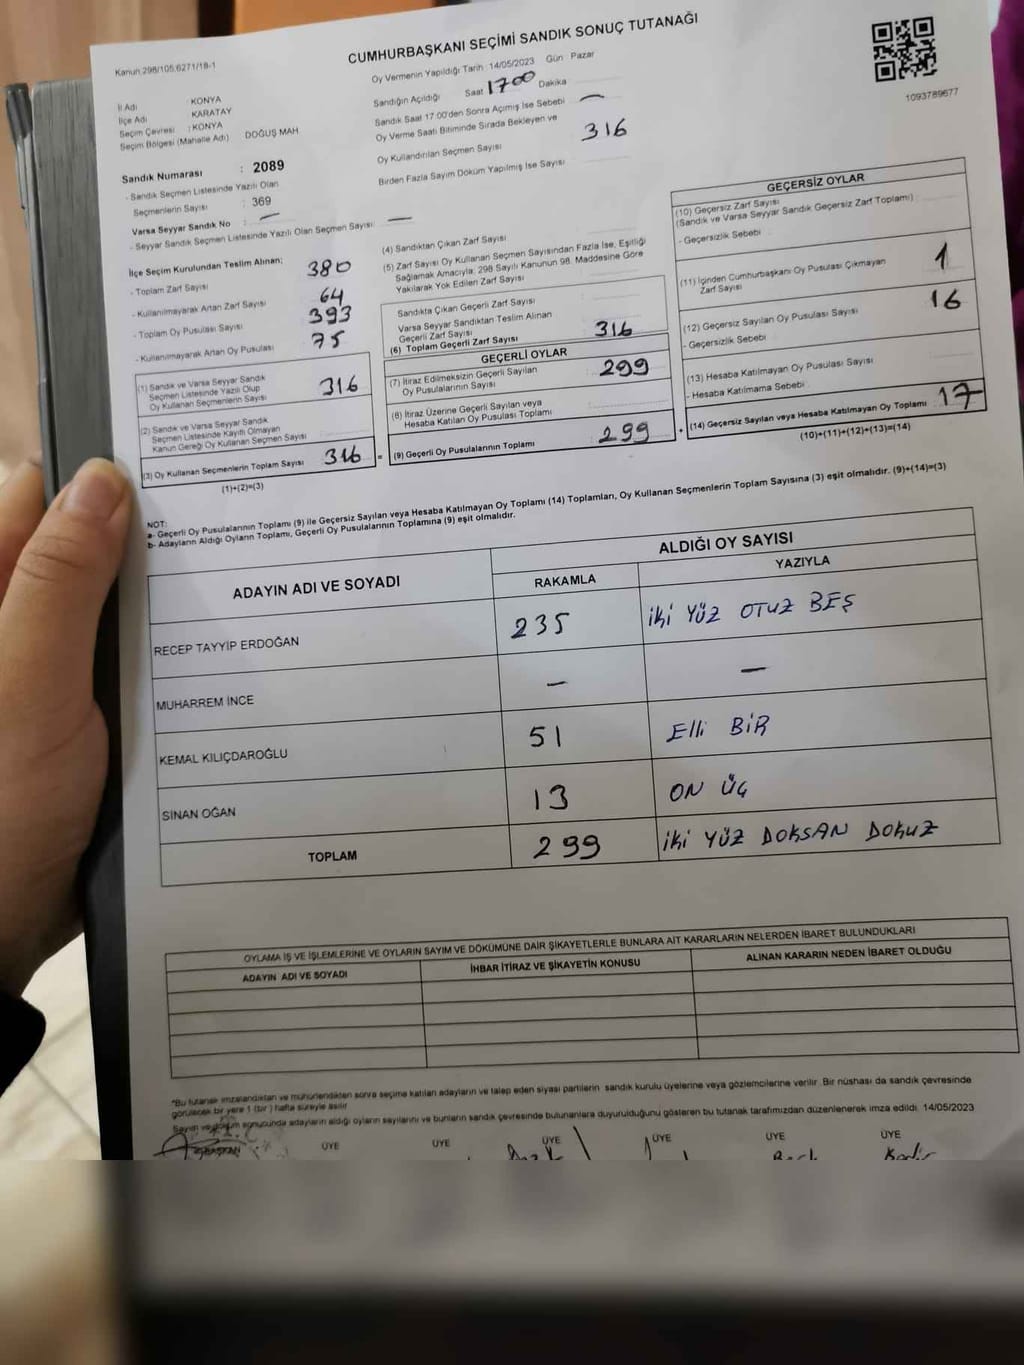 CUMHURBAŞKANI SEÇİMİ SANDIK SONUÇ TUTANAĞI
Kanun:298/105,6271/18-1
Oy Vermenin Yapıldığı Tarih :14/05/2023 Gün : Pazar
Sandığın Açıldığı Saat 1700 Dakika
Sandık Saat 17:00'den Sonra Açılmış İse Sebebi —
Oy Verme Saati Bitiminde Sırada Bekleyen ve
Oy Kullandırılan Seçmen Sayısı 316
Birden Fazla Sayım Döküm Yapılmış İse Sayısı
1093789677
İl Adı : KONYA
İlçe Adı : KARATAY
Seçim Çevresi : KONYA
Seçim Bölgesi (Mahalle Adı) DOĞUŞ MAH
Sandık Numarası : 2089
- Sandık Seçmen Listesinde Yazılı Olan
Seçmenlerin Sayısı : 369
Varsa Seyyar Sandık No : —
- Seyyar Sandık Seçmen Listesinde Yazılı Olan Seçmen Sayısı: —
İlçe Seçim Kurulundan Teslim Alınan;
- Toplam Zarf Sayısı 380
- Kullanılmayarak Artan Zarf Sayısı 64
- Toplam Oy Pusulası Sayısı 393
- Kullanılmayarak Artan Oy Pusulası 75
(1) Sandık ve Varsa Seyyar Sandık
Seçmen Listesinde Yazılı Olup
Oy Kullanan Seçmenlerin Sayısı 316
(2) Sandık ve Varsa Seyyar Sandık
Seçmen Listesinde Kayıtlı Olmayan
Kanun Gereği Oy Kullanan Seçmen Sayısı
(3) Oy Kullanan Seçmenlerin Toplam Sayısı 316
(1)+(2)=(3)
(4) Sandıktan Çıkan Zarf Sayısı
(5) Zarf Sayısı Oy Kullanan Seçmen Sayısından Fazla İse, Eşitliği
Sağlamak Amacıyla; 298 Sayılı Kanunun 98. Maddesine Göre
Yakılarak Yok Edilen Zarf Sayısı
Sandıkta Çıkan Geçerli Zarf Sayısı
Varsa Seyyar Sandıktan Teslim Alınan
Geçerli Zarf Sayısı
(6) Toplam Geçerli Zarf Sayısı 316
GEÇERLİ OYLAR
(7) İtiraz Edilmeksizin Geçerli Sayılan
Oy Pusulalarının Sayısı 299
(8) İtiraz Üzerine Geçerli Sayılan veya
Hesaba Katılan Oy Pusulası Toplamı
= (9) Geçerli Oy Pusulalarının Toplamı 299
GEÇERSİZ OYLAR
(10) Geçersiz Zarf Sayısı
(Sandık ve Varsa Seyyar Sandık Geçersiz Zarf Toplamı)
- Geçersizlik Sebebi
(11) İçinden Cumhurbaşkanı Oy Pusulası Çıkmayan
Zarf Sayısı 1
(12) Geçersiz Sayılan Oy Pusulası Sayısı 16
- Geçersizlik Sebebi
(13) Hesaba Katılmayan Oy Pusulası Sayısı
- Hesaba Katılmama Sebebi
+ (14) Geçersiz Sayılan veya Hesaba Katılmayan Oy Toplamı 17
(10)+(11)+(12)+(13)=(14)
NOT:
a- Geçerli Oy Pusulalarının Toplamı (9) ile Geçersiz Sayılan veya Hesaba Katılmayan Oy Toplamı (14) Toplamları, Oy Kullanan Seçmenlerin Toplam Sayısına (3) eşit olmalıdır. (9)+(14)=(3)
b- Adayların Aldığı Oyların Toplamı, Geçerli Oy Pusulalarının Toplamına (9) eşit olmalıdır.
ADAYIN ADI VE SOYADI ALDIĞI OY SAYISI
RAKAMLA YAZIYLA
RECEP TAYYİP ERDOĞAN 235 İKİ YÜZ OTUZ BEŞ
MUHARREM İNCE — —
KEMAL KILIÇDAROĞLU 51 Elli BİR
SİNAN OĞAN 13 ON ÜÇ
TOPLAM 299 İKİ YÜZ DOKSAN DOKUZ
OYLAMA İŞ VE İŞLEMLERİNE VE OYLARIN SAYIM VE DÖKÜMÜNE DAİR ŞİKAYETLERLE BUNLARA AİT KARARLARIN NELERDEN İBARET BULUNDUKLARI
ADAYIN ADI VE SOYADI İHBAR İTİRAZ VE ŞİKAYETİN KONUSU ALINAN KARARIN NEDEN İBARET OLDUĞU
*Bu tutanak imzalandıktan ve mühürlendikten sonra seçime katılan adayların ve talep eden siyasi partilerin sandık kurulu üyelerine veya gözlemcilerine verilir. Bir nüshası da sandık çevresinde
görülecek bir yere 1 (bir) hafta süreyle asılır.
Sayım ve döküm sonucunda adayların aldığı oyların sayılarını ve bunların sandık çevresinde bulunanlara duyurulduğunu gösteren bu tutanak tarafımızdan düzenlenerek imza edildi. 14/05/2023
BAŞKAN ÜYE ÜYE ÜYE ÜYE ÜYE ÜYE